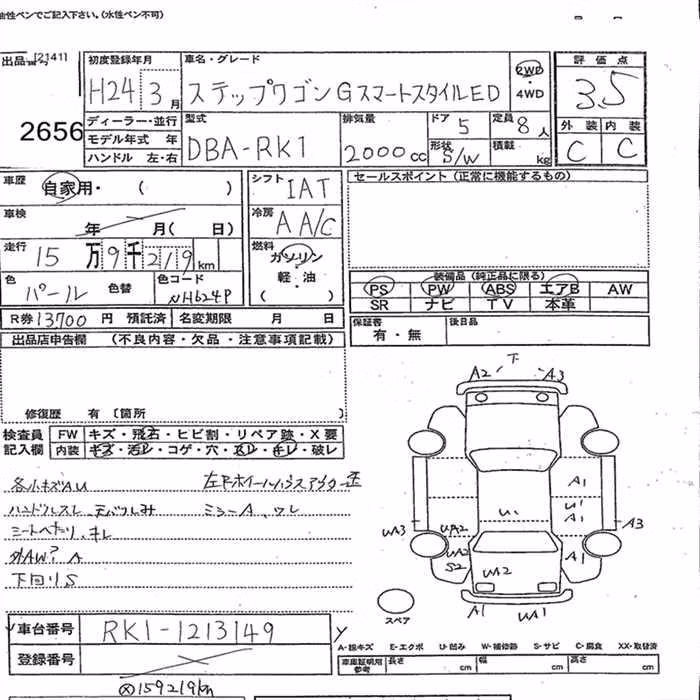 油性ペンでご記入下さい。(水性ペン不可)
出品番号 [2141]
2656
初度登録年月
H24 3月
車名・グレード
ステップワゴン GスマートスタイルED
2WD
・
4WD
評価点
3.5
外装 内装
C C
ディーラー・並行
モデル年式 年
ハンドル 左・右
型式
DBA-RK1
排気量
2000cc
ドア 5
形状 S/W
定員 8人
積載 kg
車歴 自家用・( )
シフト IAT
セールスポイント (正常に機能するもの)
車検 年 月( 日)
冷房 AA/C
走行 15万9千219km
燃料
ガソリン
軽・油
( )
色 パール 色替
色コード NH624P
装備品 (純正品に限る)
PS PW ABS エアB AW
SR ナビ TV 本革
R券 13700円 預託済 名変期限 月 日
保証書
有・無
後日品
出品店申告欄 (不良内容・欠品・注意事項記載)
修復歴 有 〔箇所 〕
検査員
記入欄
FW キズ・飛石・ヒビ割・リペア跡・X要
内装 キズ・汚レ・コゲ・穴・スレ・キレ・破レ
各小キズAU
ハンドルスレ 天バリしみ ミラーA、ワレ
シートへたり、キレ
外AW? A
下回りS
下
A2 A3
A1
U1
A1
U1
UA3 UA2 A3
UA2 A1
S2 UA2
A1 UA1
スペア
車台番号 RK1-1213149
登録番号
A-線キズ E-エクボ U-凹み W-補修跡 S-サビ C-腐食 XX-取替済
車庫証明用
参考
長さ cm 幅 cm 高さ cm
159219km